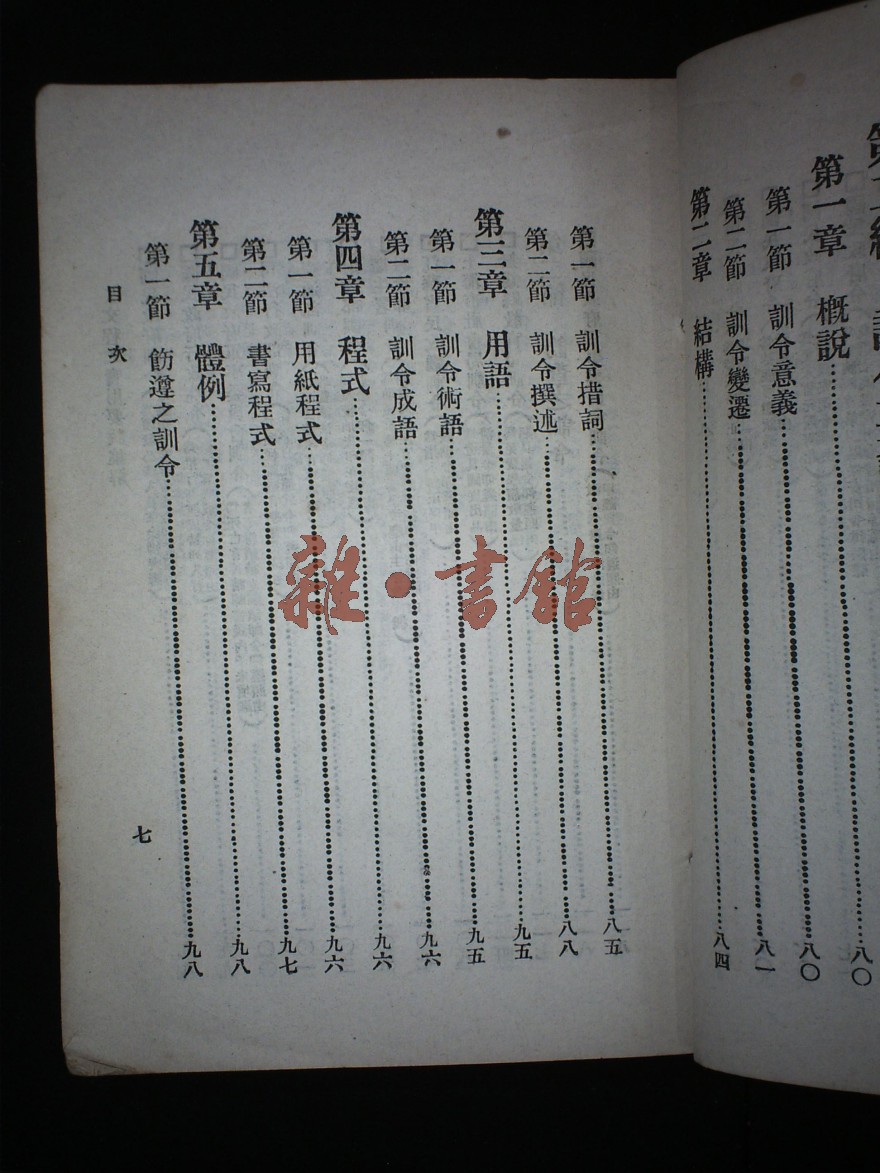 第一章 概說……八〇
第一節 訓令意義……八〇
第二節 訓令變遷……八一
第二章 結構……八四
第一節 訓令措詞……八五
第二節 訓令撰述……八八
第三章 用語……九五
第一節 訓令術語……九五
第二節 訓令成語……九六
第四章 程式……九六
第一節 用紙程式……九六
第二節 書寫程式……九七
第五章 體例……九八
第一節 飭遵之訓令……九八
目次
七
雜·書館